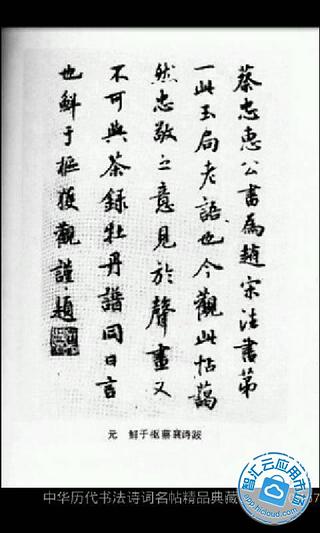 蔡忠惠公書為趙宋法書第
一此玉局老語也今觀此帖藹
然忠敬之意見於聲畫又
不可與茶録牡丹譜同日言
也鮮于樞獲觀謹題
元 鲜于枢蔡襄诗跋
中华历代书法诗词名帖精品典藏
智汇云应用市场